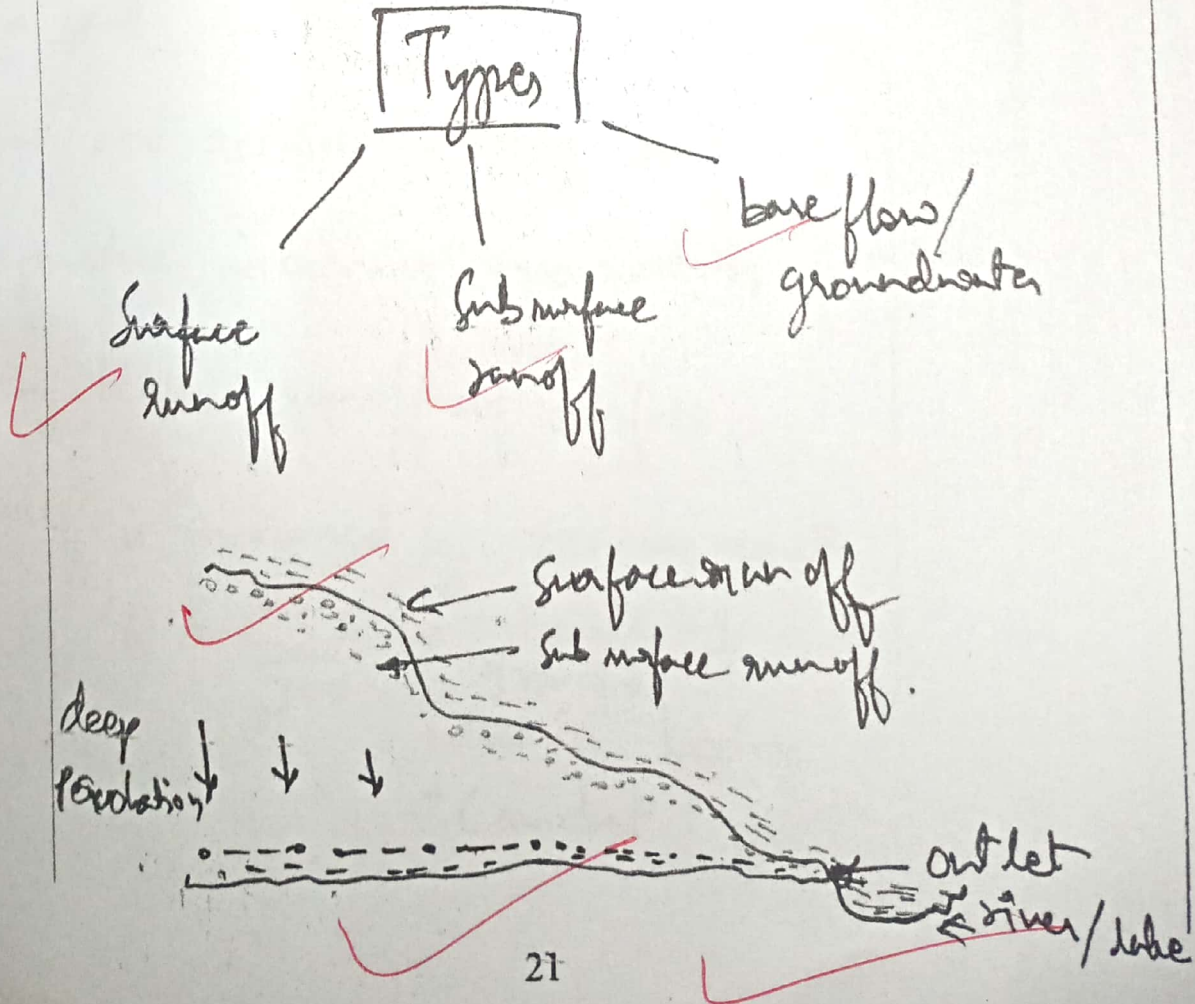 Types
Surface
runoff
Sub surface
runoff
base flow/
groundwater
Surface run off
Sub surface runoff.
deep
percolation
outlet
river/lake
21